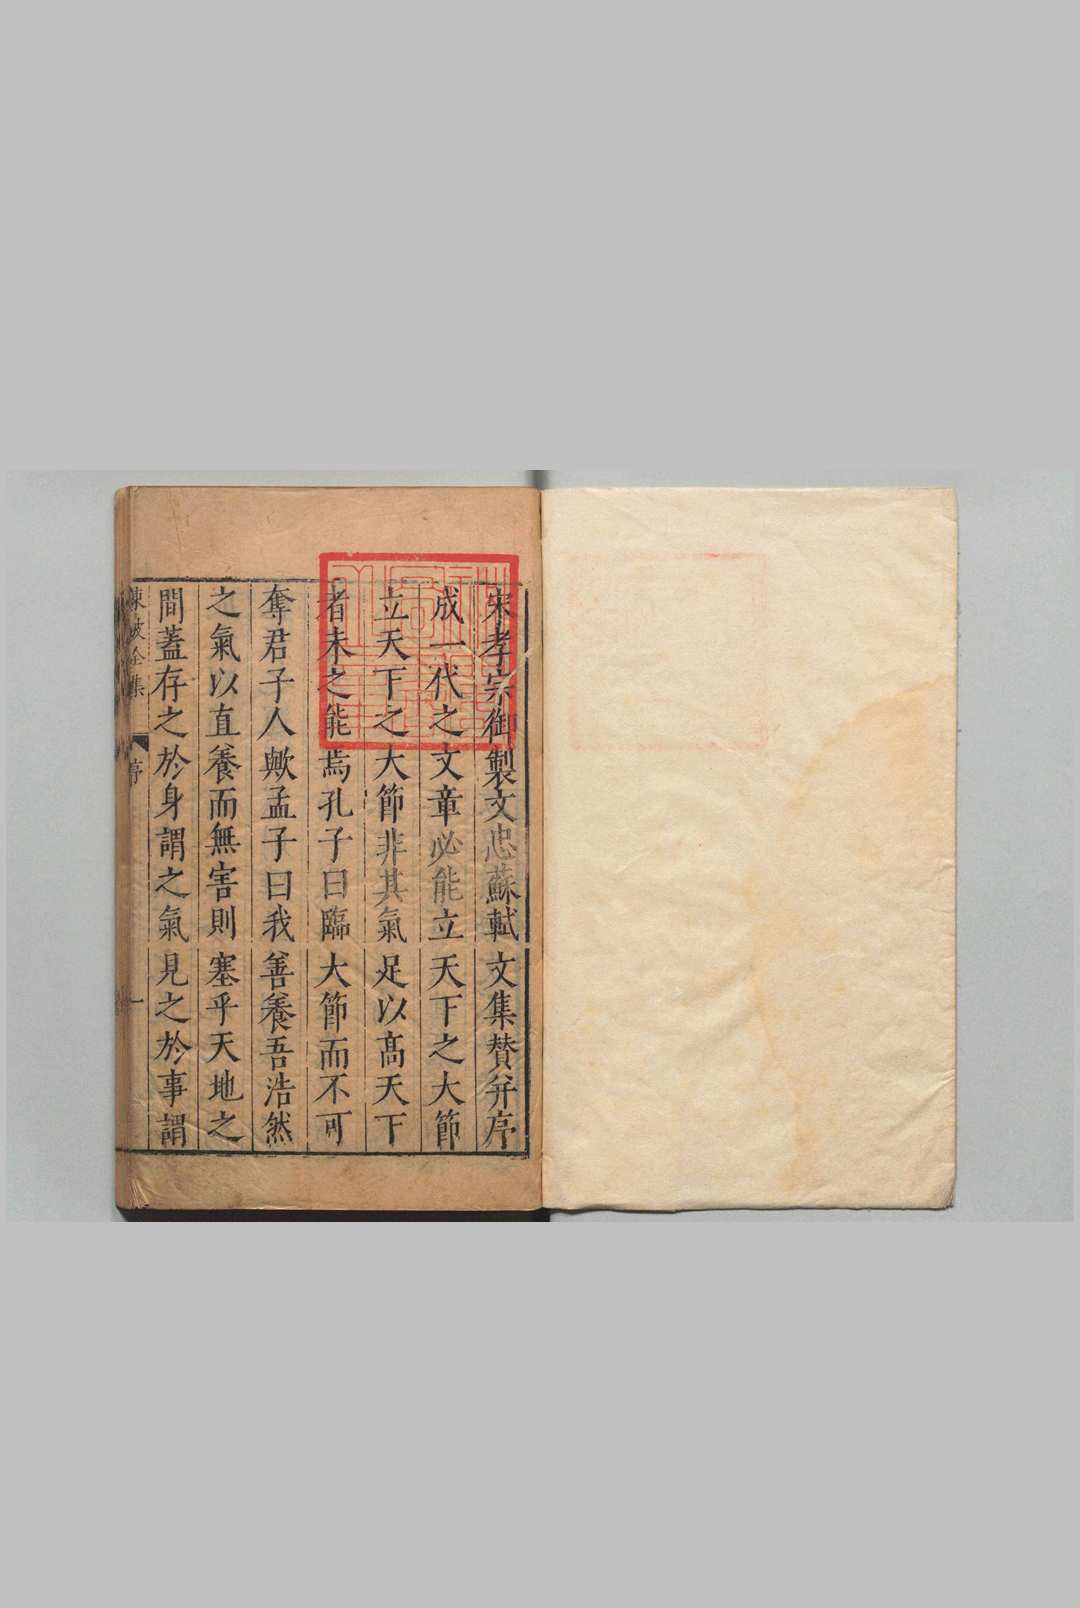 宋孝宗御製文忠蘇軾文集贊并序
成一代之文章必能立天下之大節
立天下之大節非其氣足以髙天下
者未之能焉孔子曰臨大節而不可
奪君子人歟孟子曰我善養吾浩然
之氣以直養而無害則塞乎天地之
間蓋存之於身謂之氣見之於事謂
東坡全集 序 一